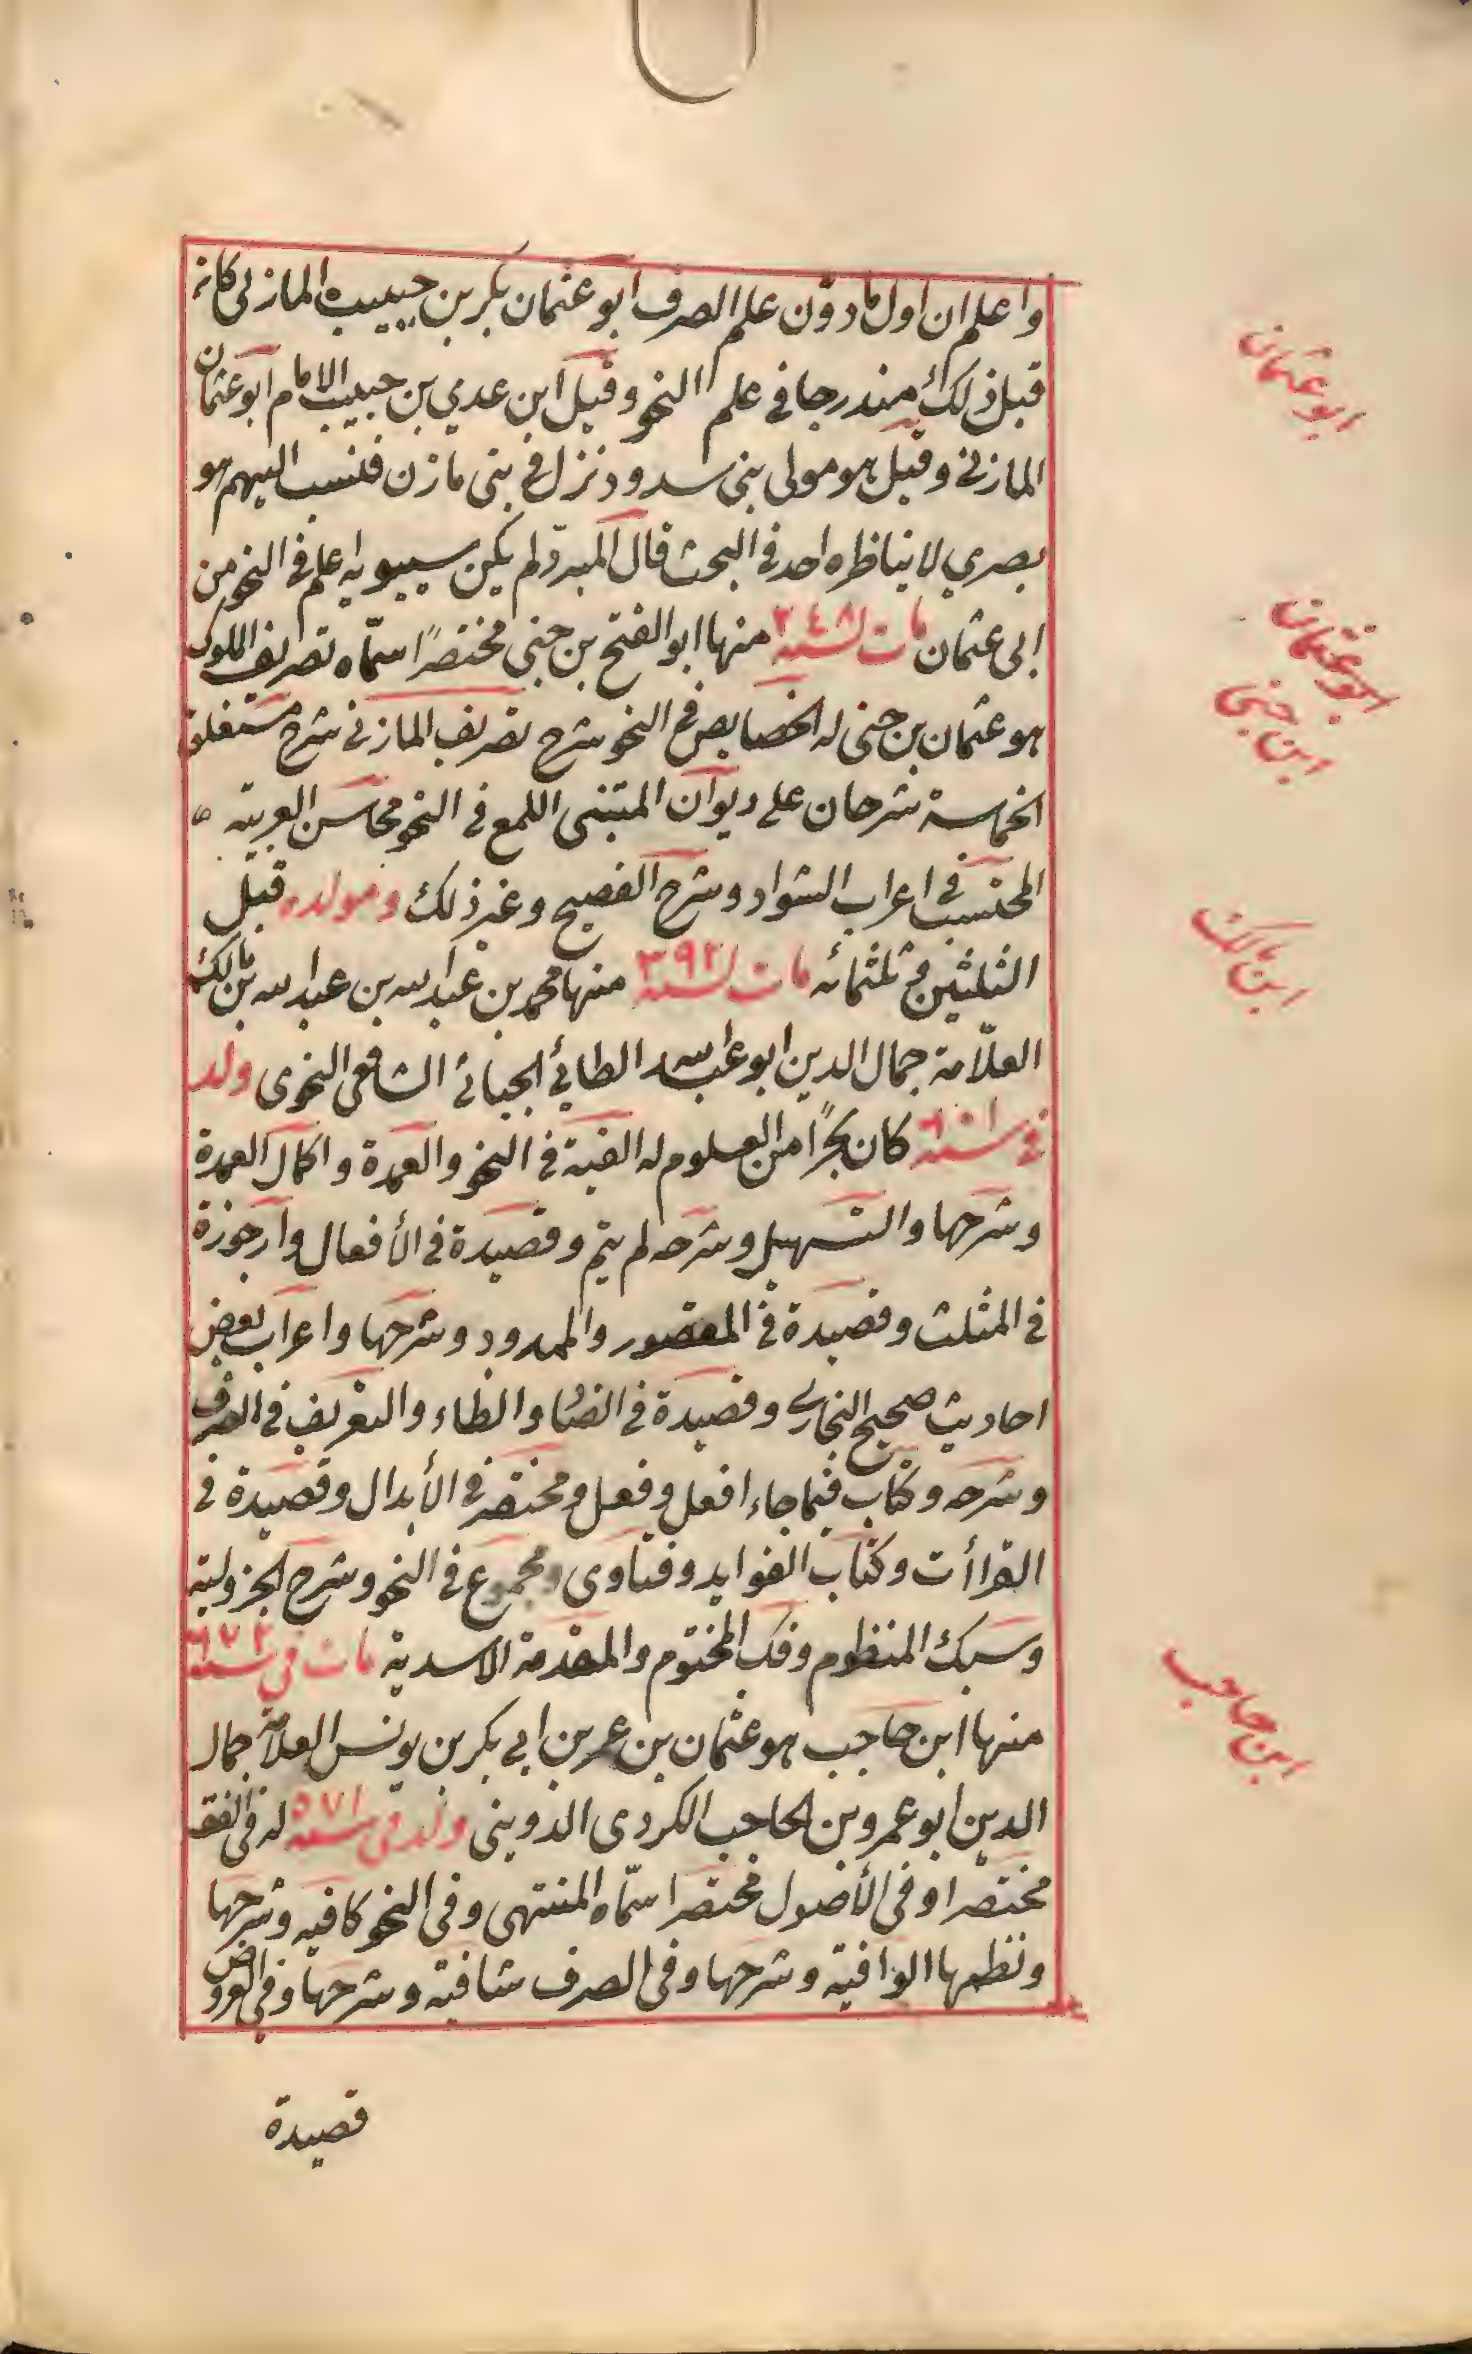 واعلم ان اول ما دوّن علم الصرف ابو عثمان بكر بن حبيب المازني كانه
قبل ذلك مندرجا في علم النحو وقيل ابن عدي بن حبيب الامام ابو عثمان
المازني وقيل هو مولى بني سدود نزل في بني مازن فنسب اليهم هو
بصري لا يناظره احد في البحث قال المبرّد لم يكن سيبويه اعلم في النحو من
ابي عثمان مات لسنة ٢٤٨ منها ابو الفتح بن جني مختصرًا سمّاه تصريف الملوك
هو عثمان بن جني له الخصايص في النحو شرح تصريف المازني شرح مستغلق
الحماسة شرحان على ديوان المتنبي اللمع في النحو محاسن العربية
المحتسب في اعراب الشواد وشرح الفصيح وغير ذلك ومولده قبل
الثلثين في ثلثمائه مات لسنة ٣٩٢ منها محمد بن عبد الله بن عبد الله بن مالك
العلّامة جمال الدين ابو عبد الله الطائي الجيائي الشافعي النحوى ولد
في سنة ٦٠١ كان بحرًا من العلوم له الفية في النحو والعمدة واكمال العمدة
وشرحها والتسهيل وشرحه لم يتم وقصيدة في الأفعال وارجوزة
في المثلث وقصيدة في المقصور والممدود وشرحها واعراب بعض
احاديث صحيح البخاري وقصيدة في الضاد والظاء والتعريف في الصرف
وشرحه وكتاب فيما جاء افعل وفعل ومختصر في الأبدال وقصيدة في
القراأت وكتاب الفوايد وفتاوى ومجموع في النحو وشرح الجزولية
وسبك المنظوم وفك المختوم والمقدمة الاسدية مات في سنة ٦٧٢
منها ابن حاجب هو عثمان بن عمر بن ابي بكر بن يونس العلامة جمال
الدين ابو عمرو بن الحاجب الكردي الدويني ولد في سنة ٥٧١ له في الفقه
مختصرا وفي الأصول مختصرا سمّاه المنتهى وفي النحو كافيه وشرحها
ونظمها الوافية وشرحها وفي الصرف شافية وشرحها وفي العروض
قصيدة
ابو عثمان
ابو عثمان
ابن جني
ابن مالك
ابن حاجب